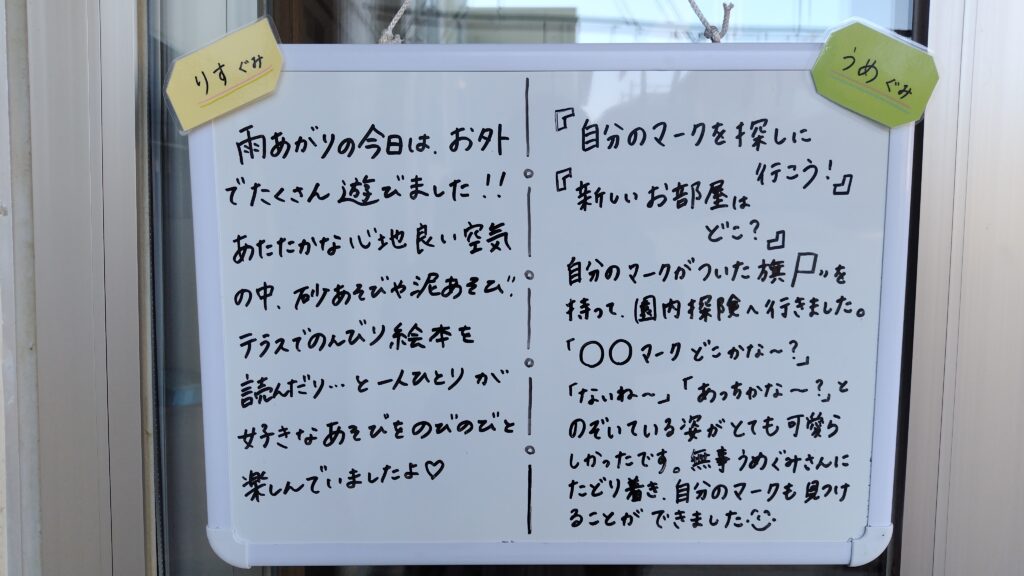 りすぐみ
雨あがりの今日は、お外
でたくさん遊びました!!
あたたかな心地良い空気
の中、砂あそびや泥あそび、
テラスでのんびり絵本を
読んだり…と一人ひとりが
好きなあそびをのびのびと
楽しんでいましたよ♡
うめぐみ
『自分のマークを探しに
行こう!』
『新しいお部屋は
どこ?』
自分のマークがついた旗を
持って、園内探険へ行きました。
「○○マークどこかな～?」
「ないね～」「あっちかな～?」と
のぞいている姿がとても可愛ら
しかったです。無事うめぐみさんに
たどり着き、自分のマークも見つけ
ることができました☺